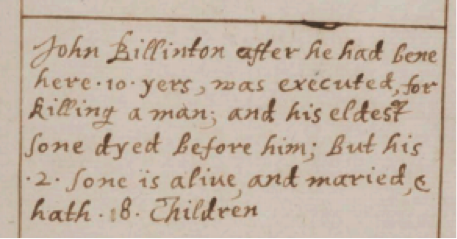 John Billinton after he had bene
here·10·yers, was executed, for
killing a man; and his eldest
sone dyed before him; But his
·2· sone is alive, and maried, &
hath ·8· Children